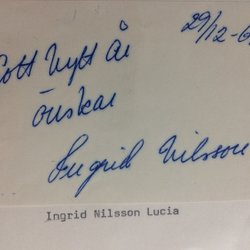 29/12-6
Gott Nytt År
önskar
Ingrid Nilsson
Ingrid Nilsson Lucia